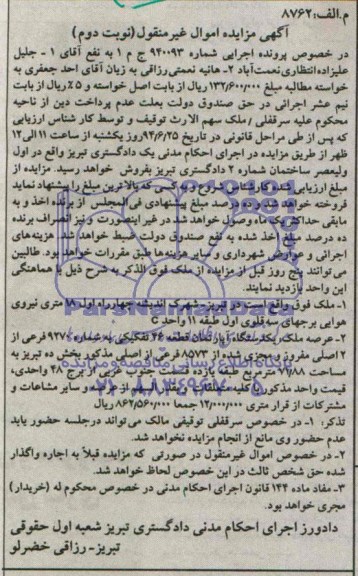 م.الف:۸۷۶۲
آگهی مزایده اموال غیرمنقول(نوبت دوم)
در خصوص پرونده اجرایی شماره ۹۴۰۰۹۳ ج م ۱ به نفع آقای ۱- جلیل
علیزاده انتظاری نعمت‌آباد ۲- هانیه نعمتی رزاقی به زیان آقای احد جعفری به
خواسته مطالبه مبلغ ۱۳۲/۶۰۰/۰۰۰ ریال از بابت اصل خواسته و ۵٪ ریال از بابت
نیم عشر اجرائی در حق صندوق دولت بعلت عدم پرداخت دین از ناحیه
محکوم علیه سرقفلی / ملک سهم الارث توقیف و توسط کار شناس ارزیابی
که پس از طی مراحل قانونی در تاریخ ۹۴/۶/۲۵ روز یکشنبه از ساعت ۱۱ الی ۱۲
ظهر از طریق مزایده در اجرای احکام مدنی یک دادگستری تبریز واقع در اول
ولیعصر ساختمان شماره ۲ دادگستری تبریز بفروش خواهد رسید. مزایده از
مبلغ ارزیابی شده کارشناس شروع و به کسی که بالاترین مبلغ را پیشنهاد نماید
فروخته خواهد شد. ده درصد مبلغ پیشنهادی فی‌المجلس از برنده اخذ و به
مابقی حداکثر یک ماه وصول خواهد شد در غیر اینصورت و نیز انصراف برنده
ده درصد مبلغ اخذ شده به نفع صندوق دولت ضبط خواهد شد. هزینه‌های
اجرائی و عوارض شهرداری و سایر هزینه‌ها طبق مقررات خواهد بود. طالبین
می توانند پنج روز قبل از مزایده از ملک فوق الذکر به شرح ذیل با هماهنگی
این واحد بازدید نمایند.
۱- ملک فوق واقع است در تبریز- شهرک اندیشه چهارراه اول ۱۸ متری نیروی
هوایی برجهای سه قلوی اول طبقه ۱۱ واحد
۲- عرصه ملک یکدستگاه آپارتمان قطعه ۴۶ تفکیکی به شماره ۹۲۷۰ فرعی از
۲ اصلی مفروز و مجزی شده از ۸۵۷۳ فرعی از اصلی مذکور بخش ده تبریز به
مساحت ۹۷/۸۸ مترمربع طبقه یازده سمت جنوب غربی از برج ۴۸ واحدی،
قیمت واحد مذکور با کلیه متعلقات و انضمام از عرصه و سایر مشاعات و
مشترکات از قرار متری ۱۲/۰۰۰/۰۰۰ جمعا ۸۶۲/۵۶۰/۰۰۰ ریال
تذکر: ۱- در خصوص سرقفلی توقیفی مالک می‌تواند درجلسه حضور یابد
عدم حضور وی مانع از انجام مزایده نخواهد شد.
۲- در خصوص اموال غیرمنقول در صورتی که مزایده قبلا به اجاره واگذار
شده حق شخص ثالث در این خصوص لحاظ خواهد شد.
۳- مفاد ماده ۱۴۴ قانون اجرای احکام مدنی در خصوص محکوم له (خریدار)
مجری خواهد بود.
دادورز اجرای احکام مدنی دادگستری تبریز شعبه اول حقوقی
تبریز- رزاقی خضرلو
ParsNamadData